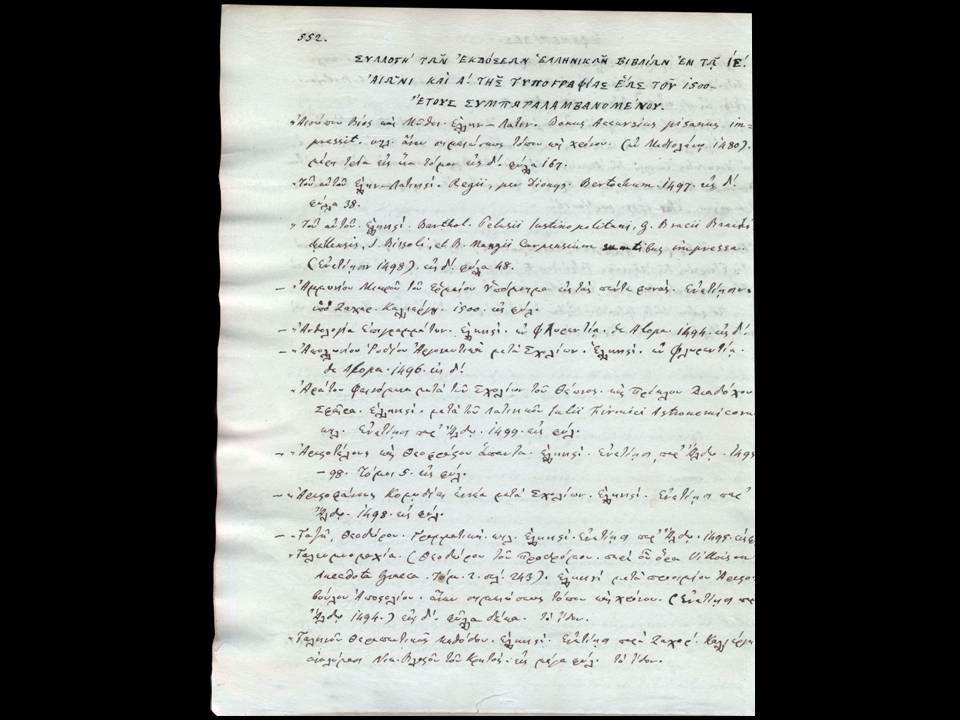 552.
ΣΥΛΛΟΓΗ ΤΩΝ ἘΚΔΌΣΕΩΝ ἙΛΛΗΝΙΚΩΝ ΒΙΒΛΊΩΝ ἘΝ ΤΩ ΙΕ΄.
ΑἸΩΝΙ ΚΑΙ Α΄. ΤΗΣ ΤΥΠΟΓΡΑΦΊΑΣ ἝΩΣ ΤΟΥ 1500-
ἜΤΟΥΣ ΣΥΜΠΑΡΑΛΑΜΒΑΝΟΜΈΝΟΥ.
Αἰσώπου Βίος καὶ Μῦθοι. Ἑλλην-Λατιν. Bonus Accursius pisanus im-
pressit. κτλ. ἄνευ σημειώσεως τόπου καὶ χρόνου. (ἐν Μεδιολάνῳ 1480).
μέρη τρία εἰς ἕνα τόμον εἰς δ΄. φύλα 167.
Τοῦ αὐτοῦ Ἑλλην-Λατινιστί. Regii, per Dionys. Bertochum. 1497. εἰς δ΄.
φύλλα 38.
Τοῦ αὐτοῦ. Ἑλληνιστί. Barthol. Pelusii Justinopolitani, G. Bracii
J. Bissoli, et B. Mangii Carpensium sumtibus impressa.
(Ἐνετίῃσιν 1498). εἰς δ΄. φύλλα 48.
Ἀμμωνίου Μικροῦ τοῦ Ἑρμείου Ὑπόμνημα εἰς τὰς πέντε φωνάς. Ἐνετίῃσιν.
ὑπὸ Ζαχαρ. Καλλιέργου. 1500. εἰς φύλ.
Ἀνθολογία Ἐπιγραμμάτων. Ἑλληνιστί. ἐν Φλωρεντίᾳ. de Alopa. 1494. εἰς δ΄.
Ἀπολλωνίου Ῥοδίου Ἀργοναυτικὰ μετὰ Σχολίων. Ἑλληνιστί. ἐν Φλωρεντίᾳ.
de Alopa. 1496. εἰς δ΄.
Ἀράτου Φαινόμενα μετὰ τῶν Σχολίων τοῦ Θέωνος. καὶ Πρόκλου Διαδόχου
Σφαῖρα. Ἑλληνιστί. μετὰ τῶν Λατινικῶν Julii Firmici Astronomicorum
κτλ. Ἐνετίῃσι παρ' Ἄλδῳ. 1499. εἰς φύλ.
Ἀριστοτέλους καὶ Θεοφράστου ἅπαντα. Ἑλληνιστί. Ἐνετίῃσι, παρ' Ἄλδῳ. 1495
-98. Τόμοι 5. εἰς φύλ.
Ἀριστοφάνους Κωμῳδίαι ἐννέα μετὰ Σχολίων. Ἑλληνιστί. Ἐνετίῃσι παρ'
Ἄλδῳ. 1498. εἰς φύλ.
Γαζῆ, Θεοδώρου. Γραμματική. κτλ. Ἑλληνιστί. Ἐνετίῃσι παρ' Ἄλδῳ. 1495. εἰς φ
Γαλεωμυομαχία. (Θεοδώρου τοῦ Προδρόμου. περὶ οὗ ὅρα Villoison
Anecdota Graeca. Τόμ. 2. σελ. 243). Ἑλληνιστὶ μετὰ προοιμίου Ἀριστο
βούλου Ἀποστολίου. ἄνευ σημειώσεως τόπου καὶ χρόνου. (Ἐνετίῃσι παρ
Ἄλδῳ 1494.) εἰς δ΄. φύλλα δέκα. Τὸ Ἴδον.
Γαληνοῦ Θεραπευτικῆς Μεθόδου. Ἑλληνιστί. Ἐνετίῃσι παρὰ Ζαχαρ. Καλλιέργῃ
ἀναλώμασι Νικ. Βλαστοῦ τοῦ Κρητός. εἰς μέγα φύλ. τὸ Ἴδον.